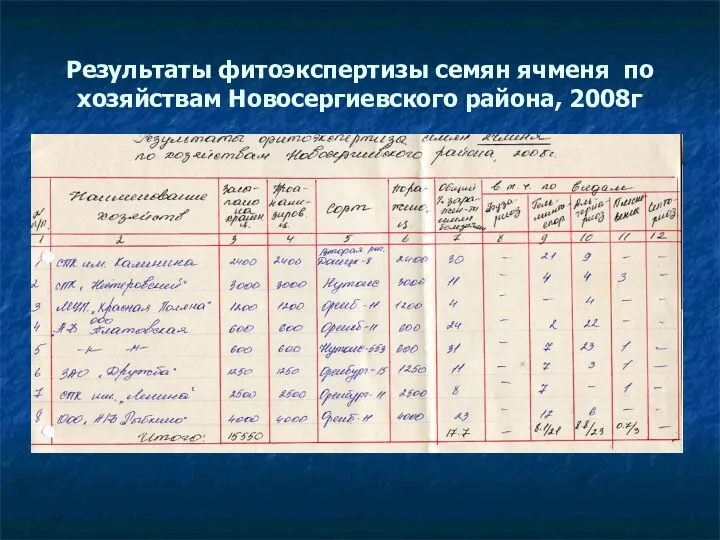 Результаты фитоэкспертизы семян ячменя по
хозяйствам Новосергиевского района, 2008г
Результаты фитоэкспертизы семян ячменя
по хозяйствам Новосергиевского района, 2008г.
N п/п. Наименование хозяйств Засыпано на хранение ц. Проанализиров. ц. Сорт Пораже-но, ц. Общий % зараж-ти семян болезнями в т. ч. по видам
Фузариоз Гельминтоспор Альтернариоз Плесневение Септориоз
1 2 3 4 5 6 7 8 9 10 11 12
1 СПК им. Калинина 2400 2400 Вторая реп. Донецк-8 2400 30 – 21 9 – –
2 СПК „Нестеровский" 3000 3000 Нутанс 3000 11 – 4 4 3 –
3 МУП „Красная Поляна" 1200 1200 Оренб-11 1200 4 – – 4 – –
4 ООО А.Ф. Платовская 600 600 Оренб-11 600 24 – 2 22 – –
5 –"– –"– 600 600 Нутанс-553 600 31 – 7 23 1 –
6 ЗАО „Дружба" 1250 1250 Оренбург-15 1250 11 – 7 3 1 –
7 СПК им. „Ленина" 2500 2500 Оренбург-11 2500 8 – 7 – 1 –
8 ООО, А/Ф Рыбкино" 4000 4000 Оренб-11 4000 23 – 17 6 – –
Итого: 15550 17.7 – 8.8/23 0.7/3 –